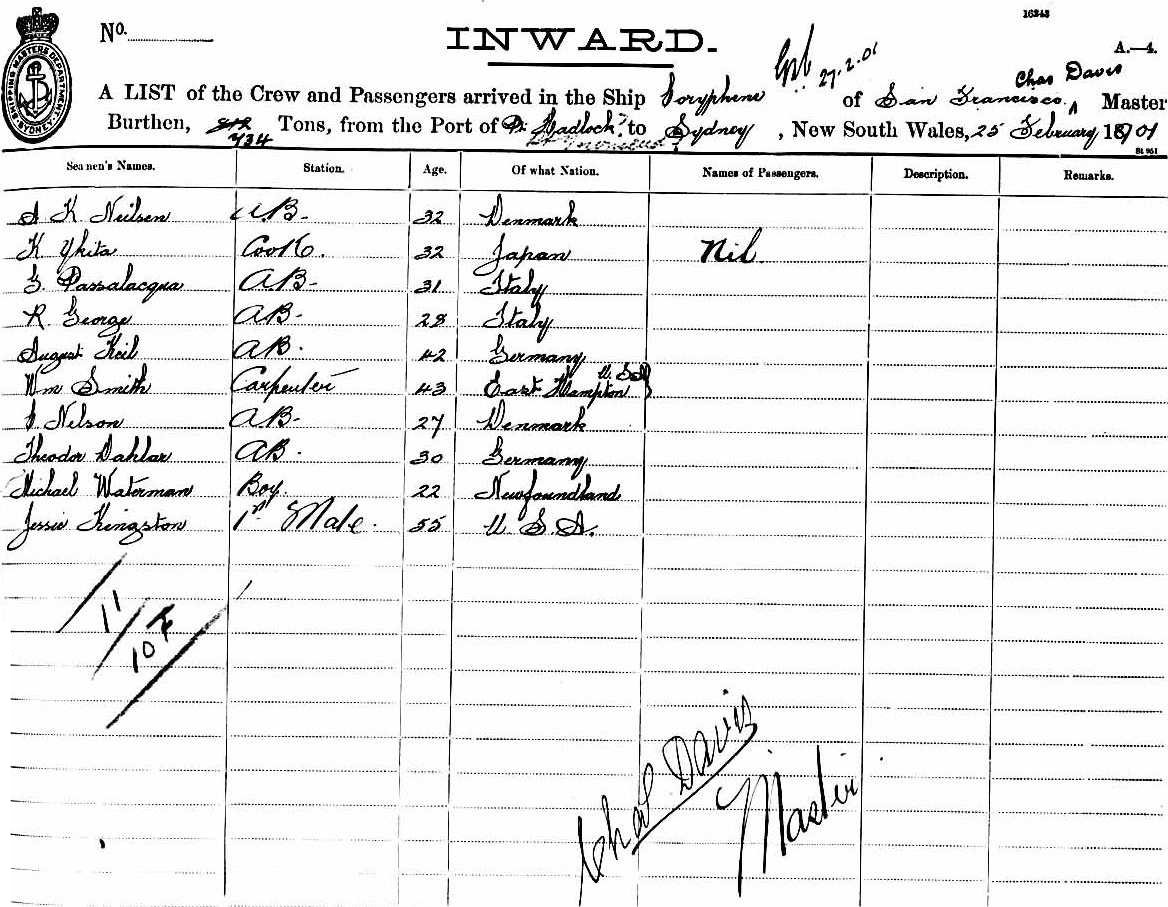 16343
No.
INWARD.
27.2.01
A.—4.
SHIPPING MASTERS DEPARTMENT SYDNEY
Chas Davis
A LIST of the Crew and Passengers arrived in the Ship of San Francisco, Master
Burthen, 734 Tons, from the Port of Pt. Hadlock to Sydney, New South Wales, 25 February 1901
St 961
Seamen's Names. Station. Age. Of what Nation. Names of Passengers. Description. Remarks.
A K Neilsen A.B. 32 Denmark
K. Ykita Cook. 32 Japan Nil
G. Passalacqua AB 31 Italy
R. George AB 28 Italy
August Keil AB. 42 Germany
Wm Smith Carpenter 43 East Hampton U.S.A
Nelson AB 27 Denmark
Theodor Dahlar AB. 30 Germany
Michael Waterman Boy. 22 Newfoundland
Jessie Kingston 1st Mate. 55 U.S.A.
11
10
Chas Davis
Master